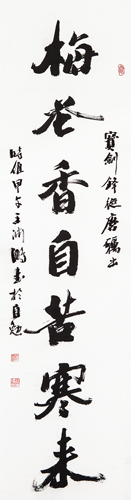 寶劍鋒從磨礪出
梅花香自苦寒來
時值甲午王潤鵬書於自勉